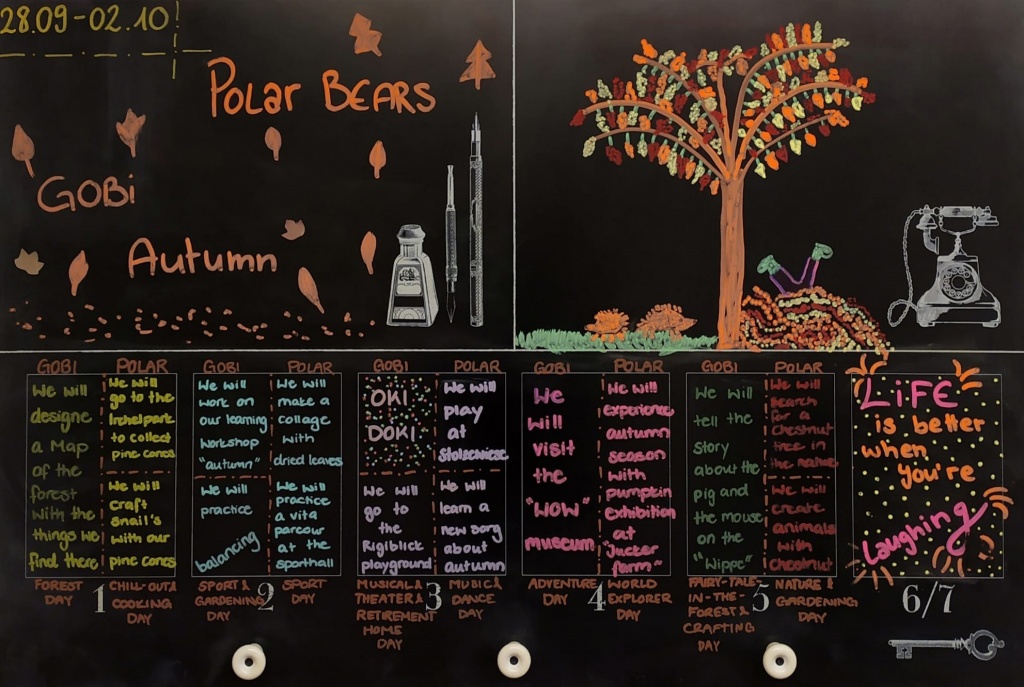 28.09-02.10
POLAR BEARS
GOBI
Autumn
GOBI
We will
designe
a Map
of the
forest
with the
things we
find there
FOREST
DAY
POLAR
We will
go to the
Irchelpark
to collect
pine cones
We will
craft
snail's
with our
pine cones
CHILL-OUT &
COOKING
DAY
1
GOBI
We will
work on
our learning
workshop
"autumn"
We will
practice
balancing
SPORT &
GARDENING
DAY
2
POLAR
We will
make a
collage
with
dried leaves
We will
practice
a vita
parcour
at the
sporthall
SPORT
DAY
GOBI
OKI
DOKI
We will
go to
the
Rigiblick
playground
MUSICAL &
THEATER &
RETIREMENT
HOME
DAY
3
POLAR
We will
play
at
Stolzewiese
We will
learn a
new song
about
autumn
MUSIC &
DANCE
DAY
GOBI
We
will
visit
the
"WOW"
museum
ADVENTURE
DAY
4
POLAR
We will
experience
autumn
season
with
pumpkin
exhibition
at
"Jucker
farm"
WORLD
EXPLORER
DAY
GOBI
We will
tell the
story
about the
pig and
the mouse
on the
"Wippe"
FAIRY-TALE-
IN-THE-
FOREST &
CRAFTING
DAY
5
POLAR
We will
search
for a
chestnut
tree in
the nature
We will
create
animals
with
chestnut
NATURE &
GARDENING
DAY
LiFE
is better
when
you're
laughing
6/7